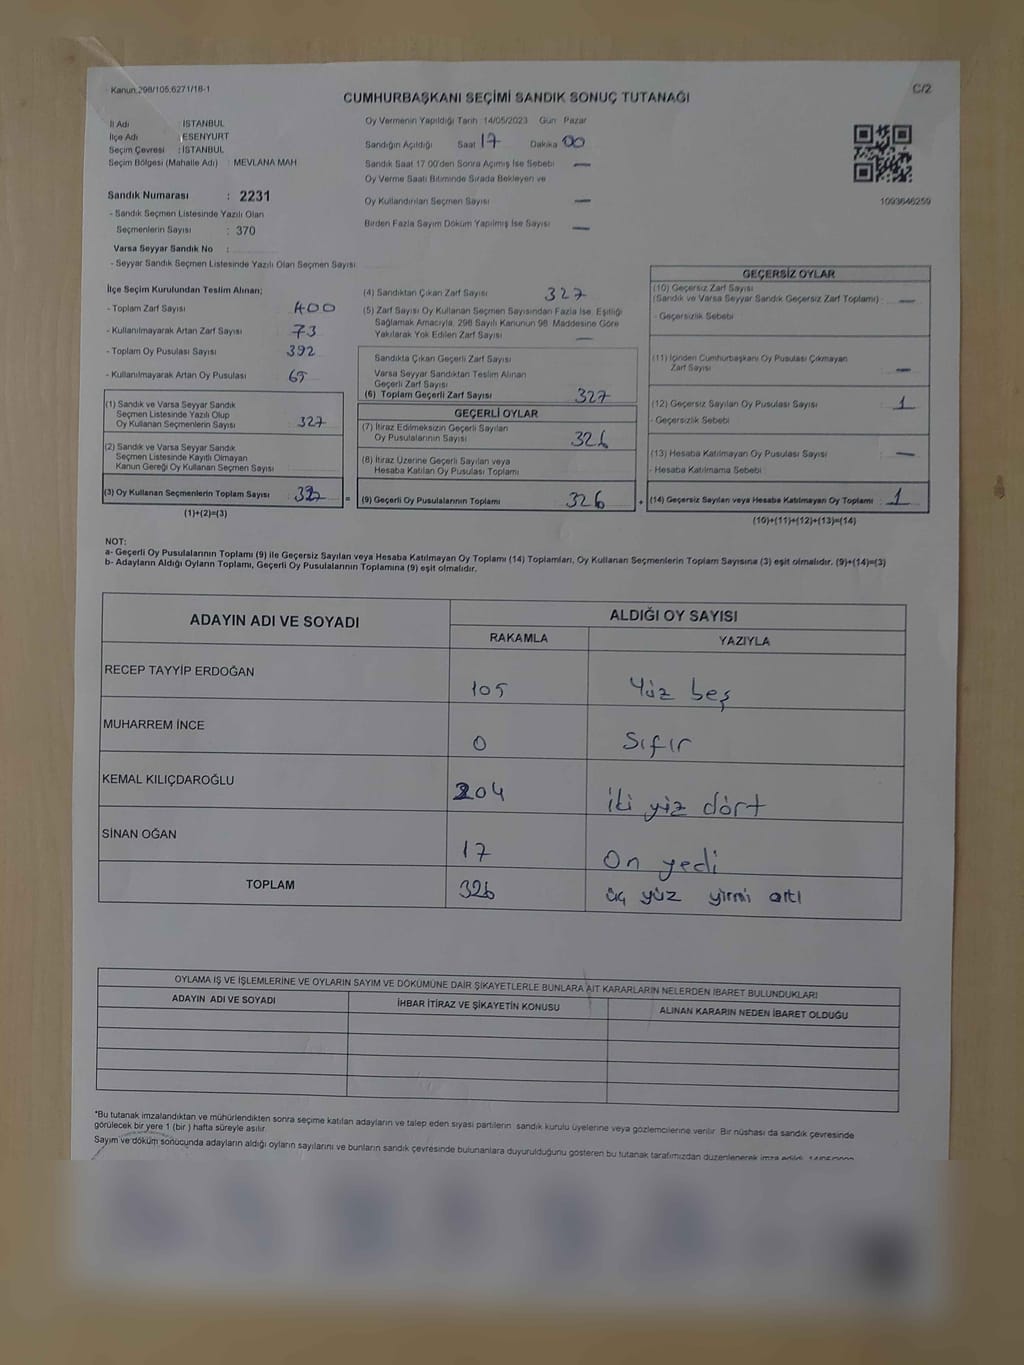 Kanun:298/105.6271/18-1
C/2
CUMHURBAŞKANI SEÇİMİ SANDIK SONUÇ TUTANAĞI
İl Adı : İSTANBUL
İlçe Adı : ESENYURT
Seçim Çevresi : İSTANBUL
Seçim Bölgesi (Mahalle Adı) : MEVLANA MAH
Sandık Numarası : 2231
- Sandık Seçmen Listesinde Yazılı Olan
Seçmenlerin Sayısı : 370
Varsa Seyyar Sandık No :
- Seyyar Sandık Seçmen Listesinde Yazılı Olan Seçmen Sayısı
Oy Vermenin Yapıldığı Tarih 14/05/2023 Gün Pazar
Sandığın Açıldığı Saat 17 Dakika 00
Sandık Saat 17:00'den Sonra Açımış İse Sebebi —
Oy Verme Saati Bitiminde Sırada Bekleyen ve
Oy Kullandırılan Seçmen Sayısı —
Birden Fazla Sayım Döküm Yapılmış İse Sayısı —
1093646259
İlçe Seçim Kurulundan Teslim Alınan;
- Toplam Zarf Sayısı 400
- Kullanılmayarak Artan Zarf Sayısı 73
- Toplam Oy Pusulası Sayısı 392
- Kullanılmayarak Artan Oy Pusulası 65
(1) Sandık ve Varsa Seyyar Sandık
Seçmen Listesinde Yazılı Olup
Oy Kullanan Seçmenlerin Sayısı : 327
(2) Sandık ve Varsa Seyyar Sandık
Seçmen Listesinde Kayıtlı Olmayan
Kanun Gereği Oy Kullanan Seçmen Sayısı
(3) Oy Kullanan Seçmenlerin Toplam Sayısı : 327 =
(1)+(2)=(3)
(4) Sandıktan Çıkan Zarf Sayısı 327
(5) Zarf Sayısı Oy Kullanan Seçmen Sayısından Fazla İse, Eşitliği
Sağlamak Amacıyla, 298 Sayılı Kanunun 98. Maddesine Göre
Yakılarak Yok Edilen Zarf Sayısı —
Sandıkta Çıkan Geçerli Zarf Sayısı
Varsa Seyyar Sandıktan Teslim Alınan
Geçerli Zarf Sayısı
(6) Toplam Geçerli Zarf Sayısı 327
GEÇERLİ OYLAR
(7) İtiraz Edilmeksizin Geçerli Sayılan
Oy Pusulalarının Sayısı 326
(8) İtiraz Üzerine Geçerli Sayılan veya
Hesaba Katılan Oy Pusulası Toplamı
(9) Geçerli Oy Pusulalarının Toplamı 326 +
GEÇERSİZ OYLAR
(10) Geçersiz Zarf Sayısı
(Sandık ve Varsa Seyyar Sandık Geçersiz Zarf Toplamı) : —
- Geçersizlik Sebebi
(11) İçinden Cumhurbaşkanı Oy Pusulası Çıkmayan
Zarf Sayısı —
(12) Geçersiz Sayılan Oy Pusulası Sayısı : 1
- Geçersizlik Sebebi
(13) Hesaba Katılmayan Oy Pusulası Sayısı —
- Hesaba Katılmama Sebebi
(14) Geçersiz Sayılan veya Hesaba Katılmayan Oy Toplamı : 1
(10)+(11)+(12)+(13)=(14)
NOT:
a- Geçerli Oy Pusulalarının Toplamı (9) ile Geçersiz Sayılan veya Hesaba Katılmayan Oy Toplamı (14) Toplamları, Oy Kullanan Seçmenlerin Toplam Sayısına (3) eşit olmalıdır. (9)+(14)=(3)
b- Adayların Aldığı Oyların Toplamı, Geçerli Oy Pusulalarının Toplamına (9) eşit olmalıdır.
ADAYIN ADI VE SOYADI
ALDIĞI OY SAYISI
RAKAMLA YAZIYLA
RECEP TAYYİP ERDOĞAN 105 Yüz beş
MUHARREM İNCE 0 Sıfır
KEMAL KILIÇDAROĞLU 204 İki yüz dört
SİNAN OĞAN 17 On yedi
TOPLAM 326 üç yüz yirmi altı
OYLAMA İŞ VE İŞLEMLERİNE VE OYLARIN SAYIM VE DÖKÜMÜNE DAİR ŞİKAYETLERLE BUNLARA AİT KARARLARIN NELERDEN İBARET BULUNDUKLARI
ADAYIN ADI VE SOYADI İHBAR İTİRAZ VE ŞİKAYETİN KONUSU ALINAN KARARIN NEDEN İBARET OLDUĞU
*Bu tutanak imzalandıktan ve mühürlendikten sonra seçime katılan adayların ve talep eden siyasi partilerin sandık kurulu üyelerine veya gözlemcilerine verilir. Bir nüshası da sandık çevresinde
görülecek bir yere 1 (bir) hafta süreyle asılır.
Sayım ve döküm sonucunda adayların aldığı oyların sayılarını ve bunların sandık çevresinde bulunanlara duyurulduğunu gösteren bu tutanak tarafımızdan düzenlenerek imza edildi. 14/05/2023